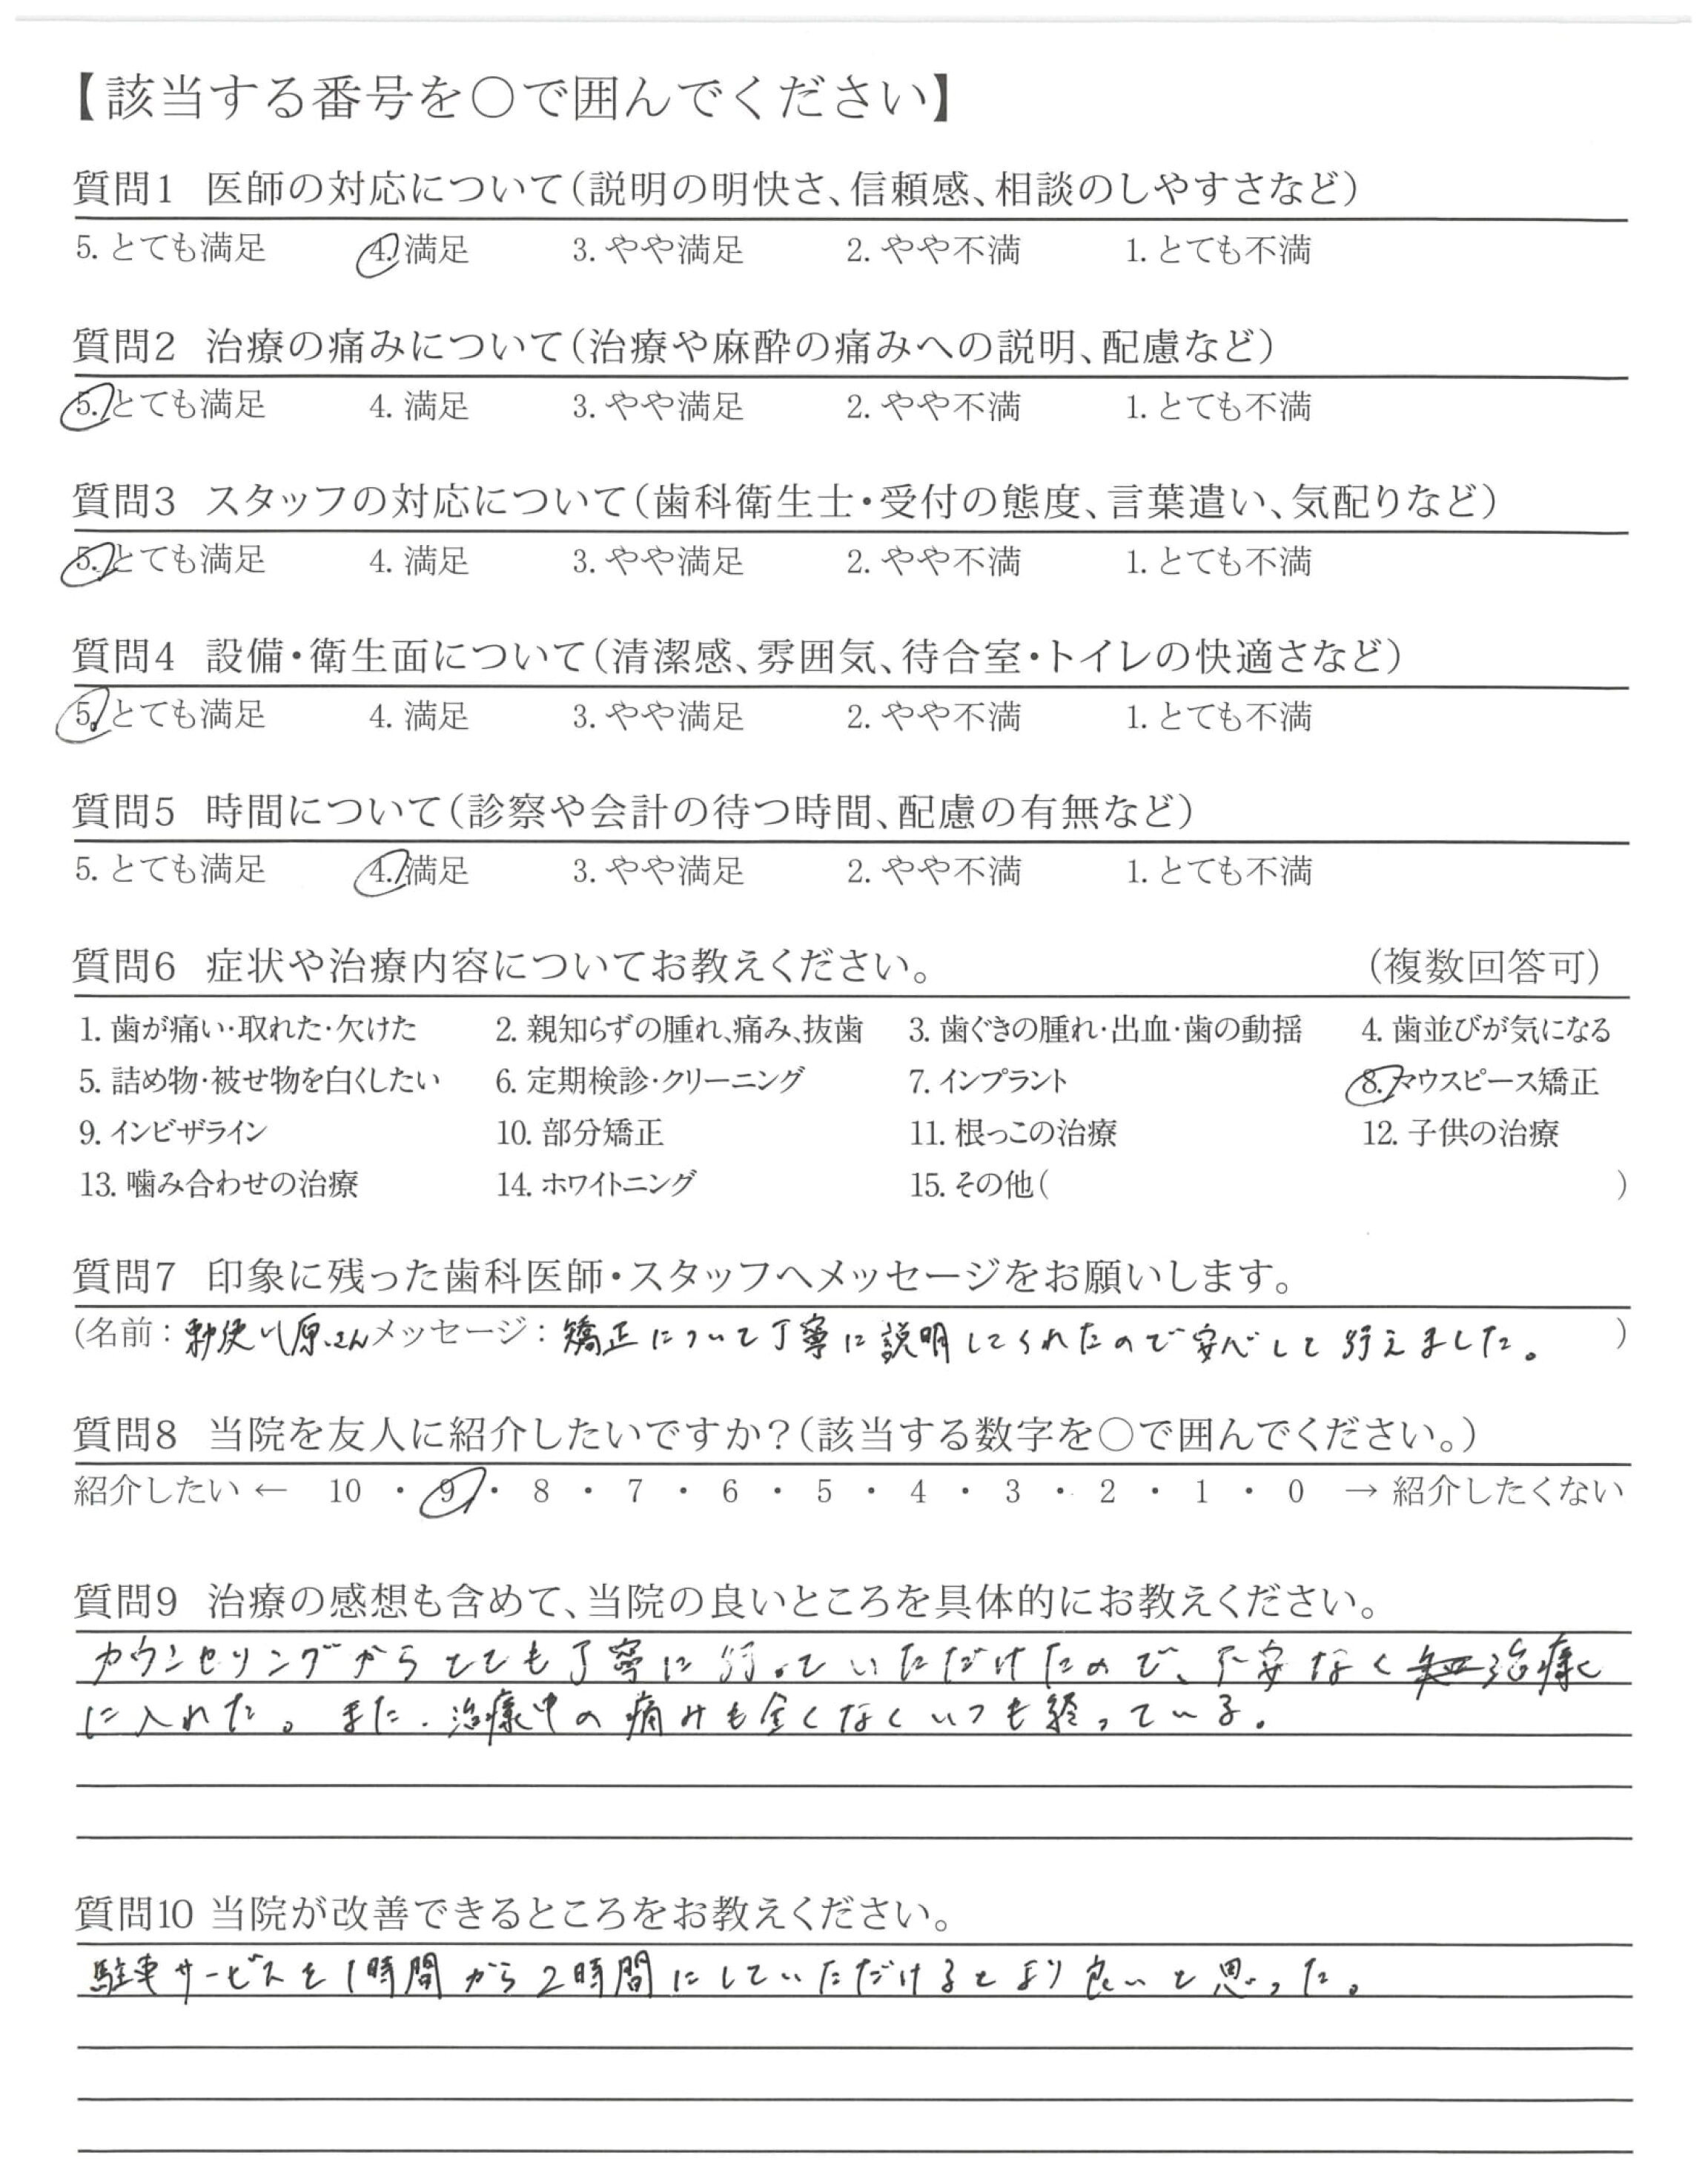 【該当する番号を○で囲んでください】
質問1 医師の対応について(説明の明快さ、信頼感、相談のしやすさなど)
5. とても満足 4. 満足 3. やや満足 2. やや不満 1. とても不満
質問2 治療の痛みについて(治療や麻酔の痛みへの説明、配慮など)
5. とても満足 4. 満足 3. やや満足 2. やや不満 1. とても不満
質問3 スタッフの対応について(歯科衛生士・受付の態度、言葉遣い、気配りなど)
5. とても満足 4. 満足 3. やや満足 2. やや不満 1. とても不満
質問4 設備・衛生面について(清潔感、雰囲気、待合室・トイレの快適さなど)
5. とても満足 4. 満足 3. やや満足 2. やや不満 1. とても不満
質問5 時間について(診察や会計の待つ時間、配慮の有無など)
5. とても満足 4. 満足 3. やや満足 2. やや不満 1. とても不満
質問6 症状や治療内容についてお教えください。 (複数回答可)
1. 歯が痛い・取れた・欠けた 2. 親知らずの腫れ、痛み、抜歯 3. 歯ぐきの腫れ・出血・歯の動揺 4. 歯並びが気になる
5. 詰め物・被せ物を白くしたい 6. 定期検診・クリーニング 7. インプラント 8. マウスピース矯正
9. インビザライン 10. 部分矯正 11. 根っこの治療 12. 子供の治療
13. 噛み合わせの治療 14. ホワイトニング 15. その他( )
質問7 印象に残った歯科医師・スタッフへメッセージをお願いします。
(名前:勅使川原さん メッセージ:矯正について丁寧に説明してくれたので安心して行えました。 )
質問8 当院を友人に紹介したいですか?(該当する数字を○で囲んでください。)
紹介したい ← 10 ・ 9 ・ 8 ・ 7 ・ 6 ・ 5 ・ 4 ・ 3 ・ 2 ・ 1 ・ 0 → 紹介したくない
質問9 治療の感想も含めて、当院の良いところを具体的にお教えください。
カウンセリングからとても丁寧に行っていただけたので、不安なく治療に
に入れた。また、治療中の痛みも全くなくいつも終っている。
質問10 当院が改善できるところをお教えください。
駐車サービスを1時間から2時間にしていただけるとより良いと思った。